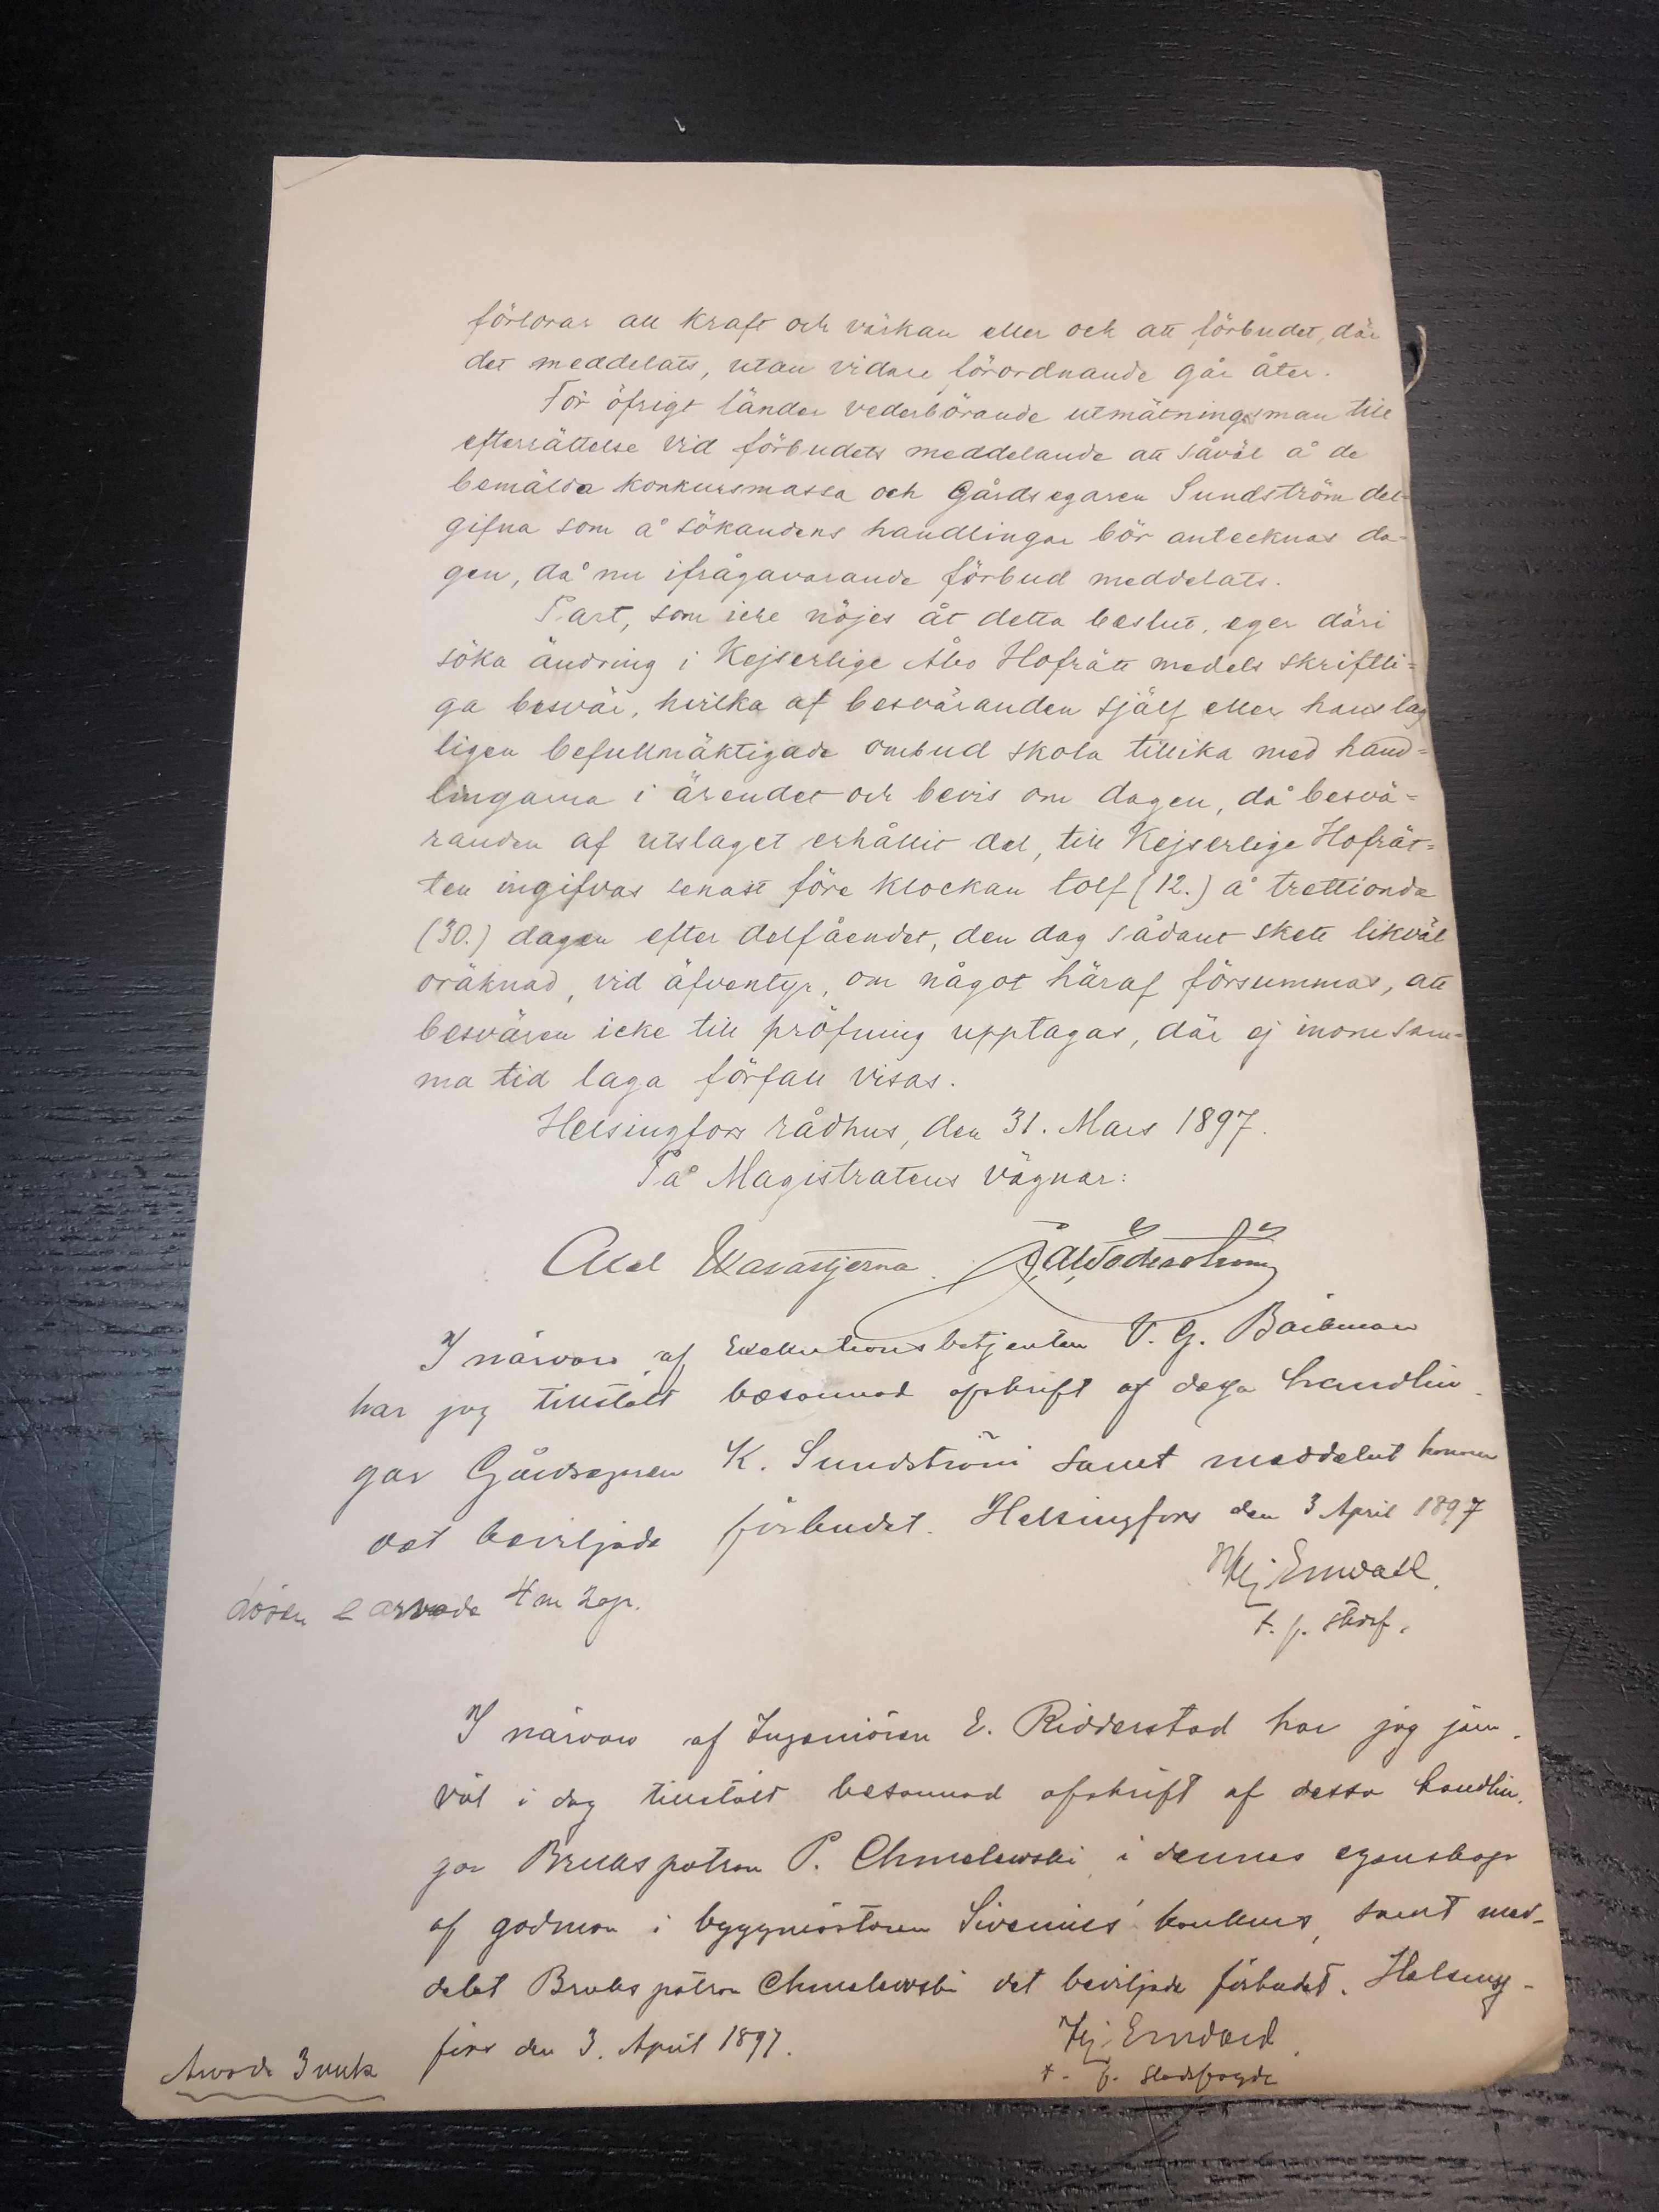 förlorar all kraft och värkan eller och att förbudet, där
det meddelats, utan vidare förordnande går åter.
För öfrigt länder vederbörande utmätningsman till
efterrättelse vid förbudets meddelande att såväl å de
bemälda konkursmassa och Gårdsegaren Sundström del-
gifna som å sökandens handlingar bör antecknas da-
gen, då nu ifrågavarande förbud meddelats.
Part, som icke nöjes åt detta beslut, eger däri
söka ändring i Kejserlige Åbo Hofrätt medels skriftli=
ga besvär, hvilka af besväranden själf eller hans lag
ligen befullmäktigade ombud skola tillika med hand=
lingarna i ärendet och bevis om dagen, då besvä=
randen af utslaget erhållit del, till Kejserlige Hofrät=
ten ingifvas senast före klockan tolf (12.) å trettionde
(30.) dagen efter delfåendet, den dag sådant skett likväl
oräknad, vid äfventyr, om något häraf försummas, att
besvären icke till pröfning upptagas, där ej inom sam=
ma tid laga förfall visas.
Helsingfors rådhus, den 31. Mars 1897.
På Magistratens vägnar:
Axel Wasastjerna. Söderström
I närvaro af Exekutionsbetjenten V. G. Backman
har jag tillstält besannad afskrift af dessa handlin-
gar Gårdsegaren K. Sundström samt meddelat honom
det beviljade förbudet. Helsingfors den 3 April 1897
Hj. Emvall.
Lösen & arvode 4 m 20 p.
t. f. Stdsf.
I närvaro af Ingeniören E. Ridderstad har jag jäm-
väl i dag tillstält besannad afskrift af dessa handlin-
gar Brukspatron P. Chmelewski i dennes egenskap
af godman i byggmästaren Sivenius' konkurs, samt med-
delat Brukspatron Chmelewski det beviljade förbudet. Helsing-
fors den 3. April 1897.
Hj. Emvall.
Arvode 3 mk
t. f. Stadsfogde